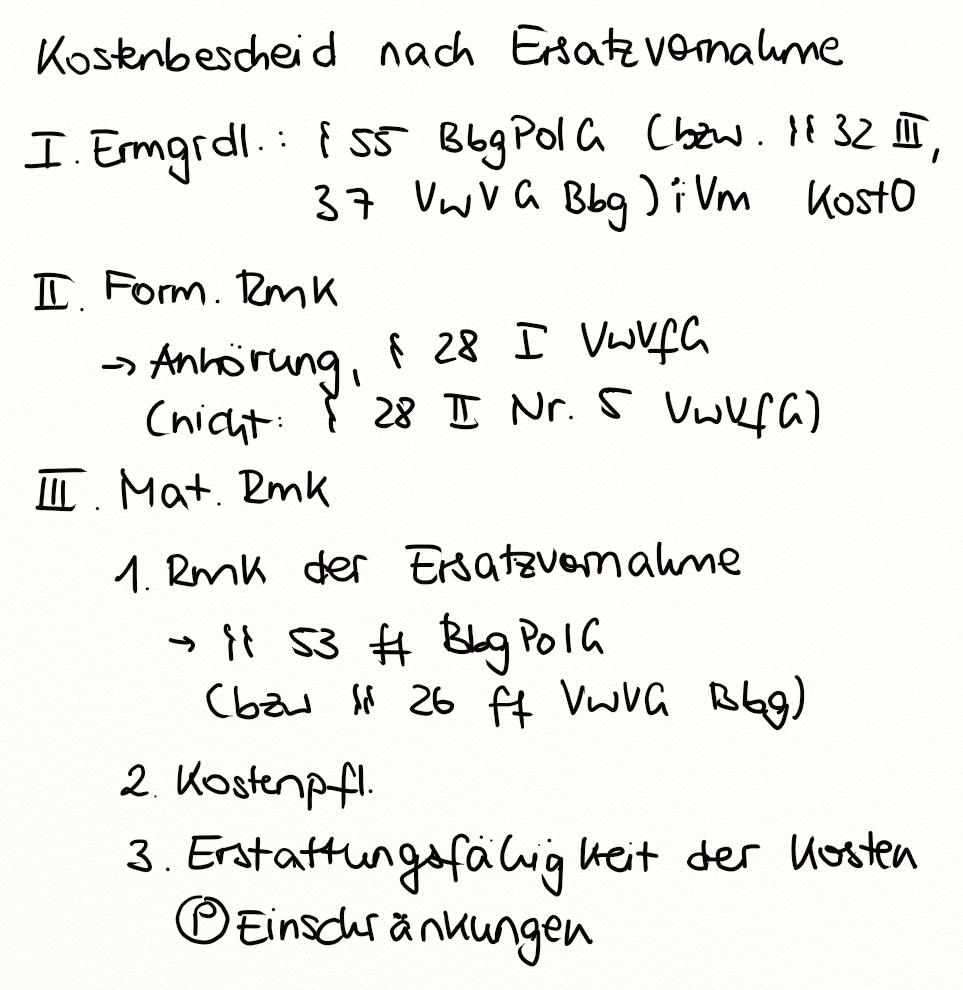 Kostenbescheid nach Ersatzvornahme
I. Ermgrdl.: § 55 BbgPolG (bzw. §§ 32 III,
37 VwVG Bbg) iVm KostO
II. Form. Rmk
→ Anhörung, § 28 I VwVfG
(nicht: § 28 II Nr. 5 VwVfG)
III. Mat. Rmk
1. Rmk der Ersatzvornahme
→ §§ 53 ff BbgPolG
(bzw §§ 26 ff VwVG Bbg)
2. Kostenpfl.
3. Erstattungsfähigkeit der Kosten
Ⓟ Einschränkungen